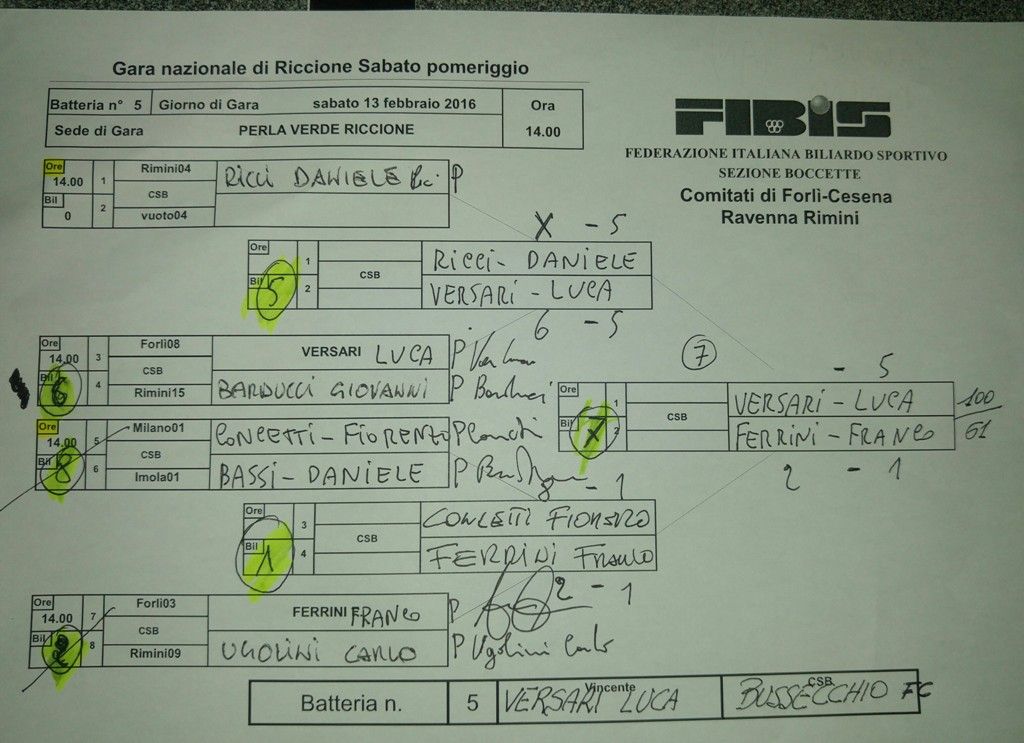 Gara nazionale di Riccione Sabato pomeriggio
Batteria n° 5 Giorno di Gara sabato 13 febbraio 2016 Ora
Sede di Gara PERLA VERDE RICCIONE 14.00
FIBIS
FEDERAZIONE ITALIANA BILIARDO SPORTIVO
SEZIONE BOCCETTE
Comitati di Forlì-Cesena
Ravenna Rimini
Ore 14.00 1 Rimini04 RICCI DANIELE P
CSB
Bil 0 2 vuoto04
X - 5
Ore 1 CSB RICCI- DANIELE
Bil 5 2 VERSARI - LUCA
6 - 5
Ore 14.00 3 Forlì08 VERSARI LUCA P
CSB
Bil 6 4 Rimini15 BARDUCCI GIOVANNI P
7
- 5
Ore 1 CSB VERSARI - LUCA 100
Bil 7 2 FERRINI - FRANCO 61
2 - 1
Ore 14.00 5 Milano01 CONCETTI - FIORENZO P
CSB
Bil 8 6 Imola01 BASSI - DANIELE P
- 1
Ore 3 CSB CONCETTI FIORENZO
Bil 1 4 FERRINI FRANCO
2 - 1
Ore 14.00 7 Forlì03 FERRINI FRANCO P
CSB
Bil 2 8 Rimini09 UGOLINI CARLO P Ugolini Carlo
Batteria n. 5 Vincente VERSARI LUCA CSB BUSSECCHIO FC